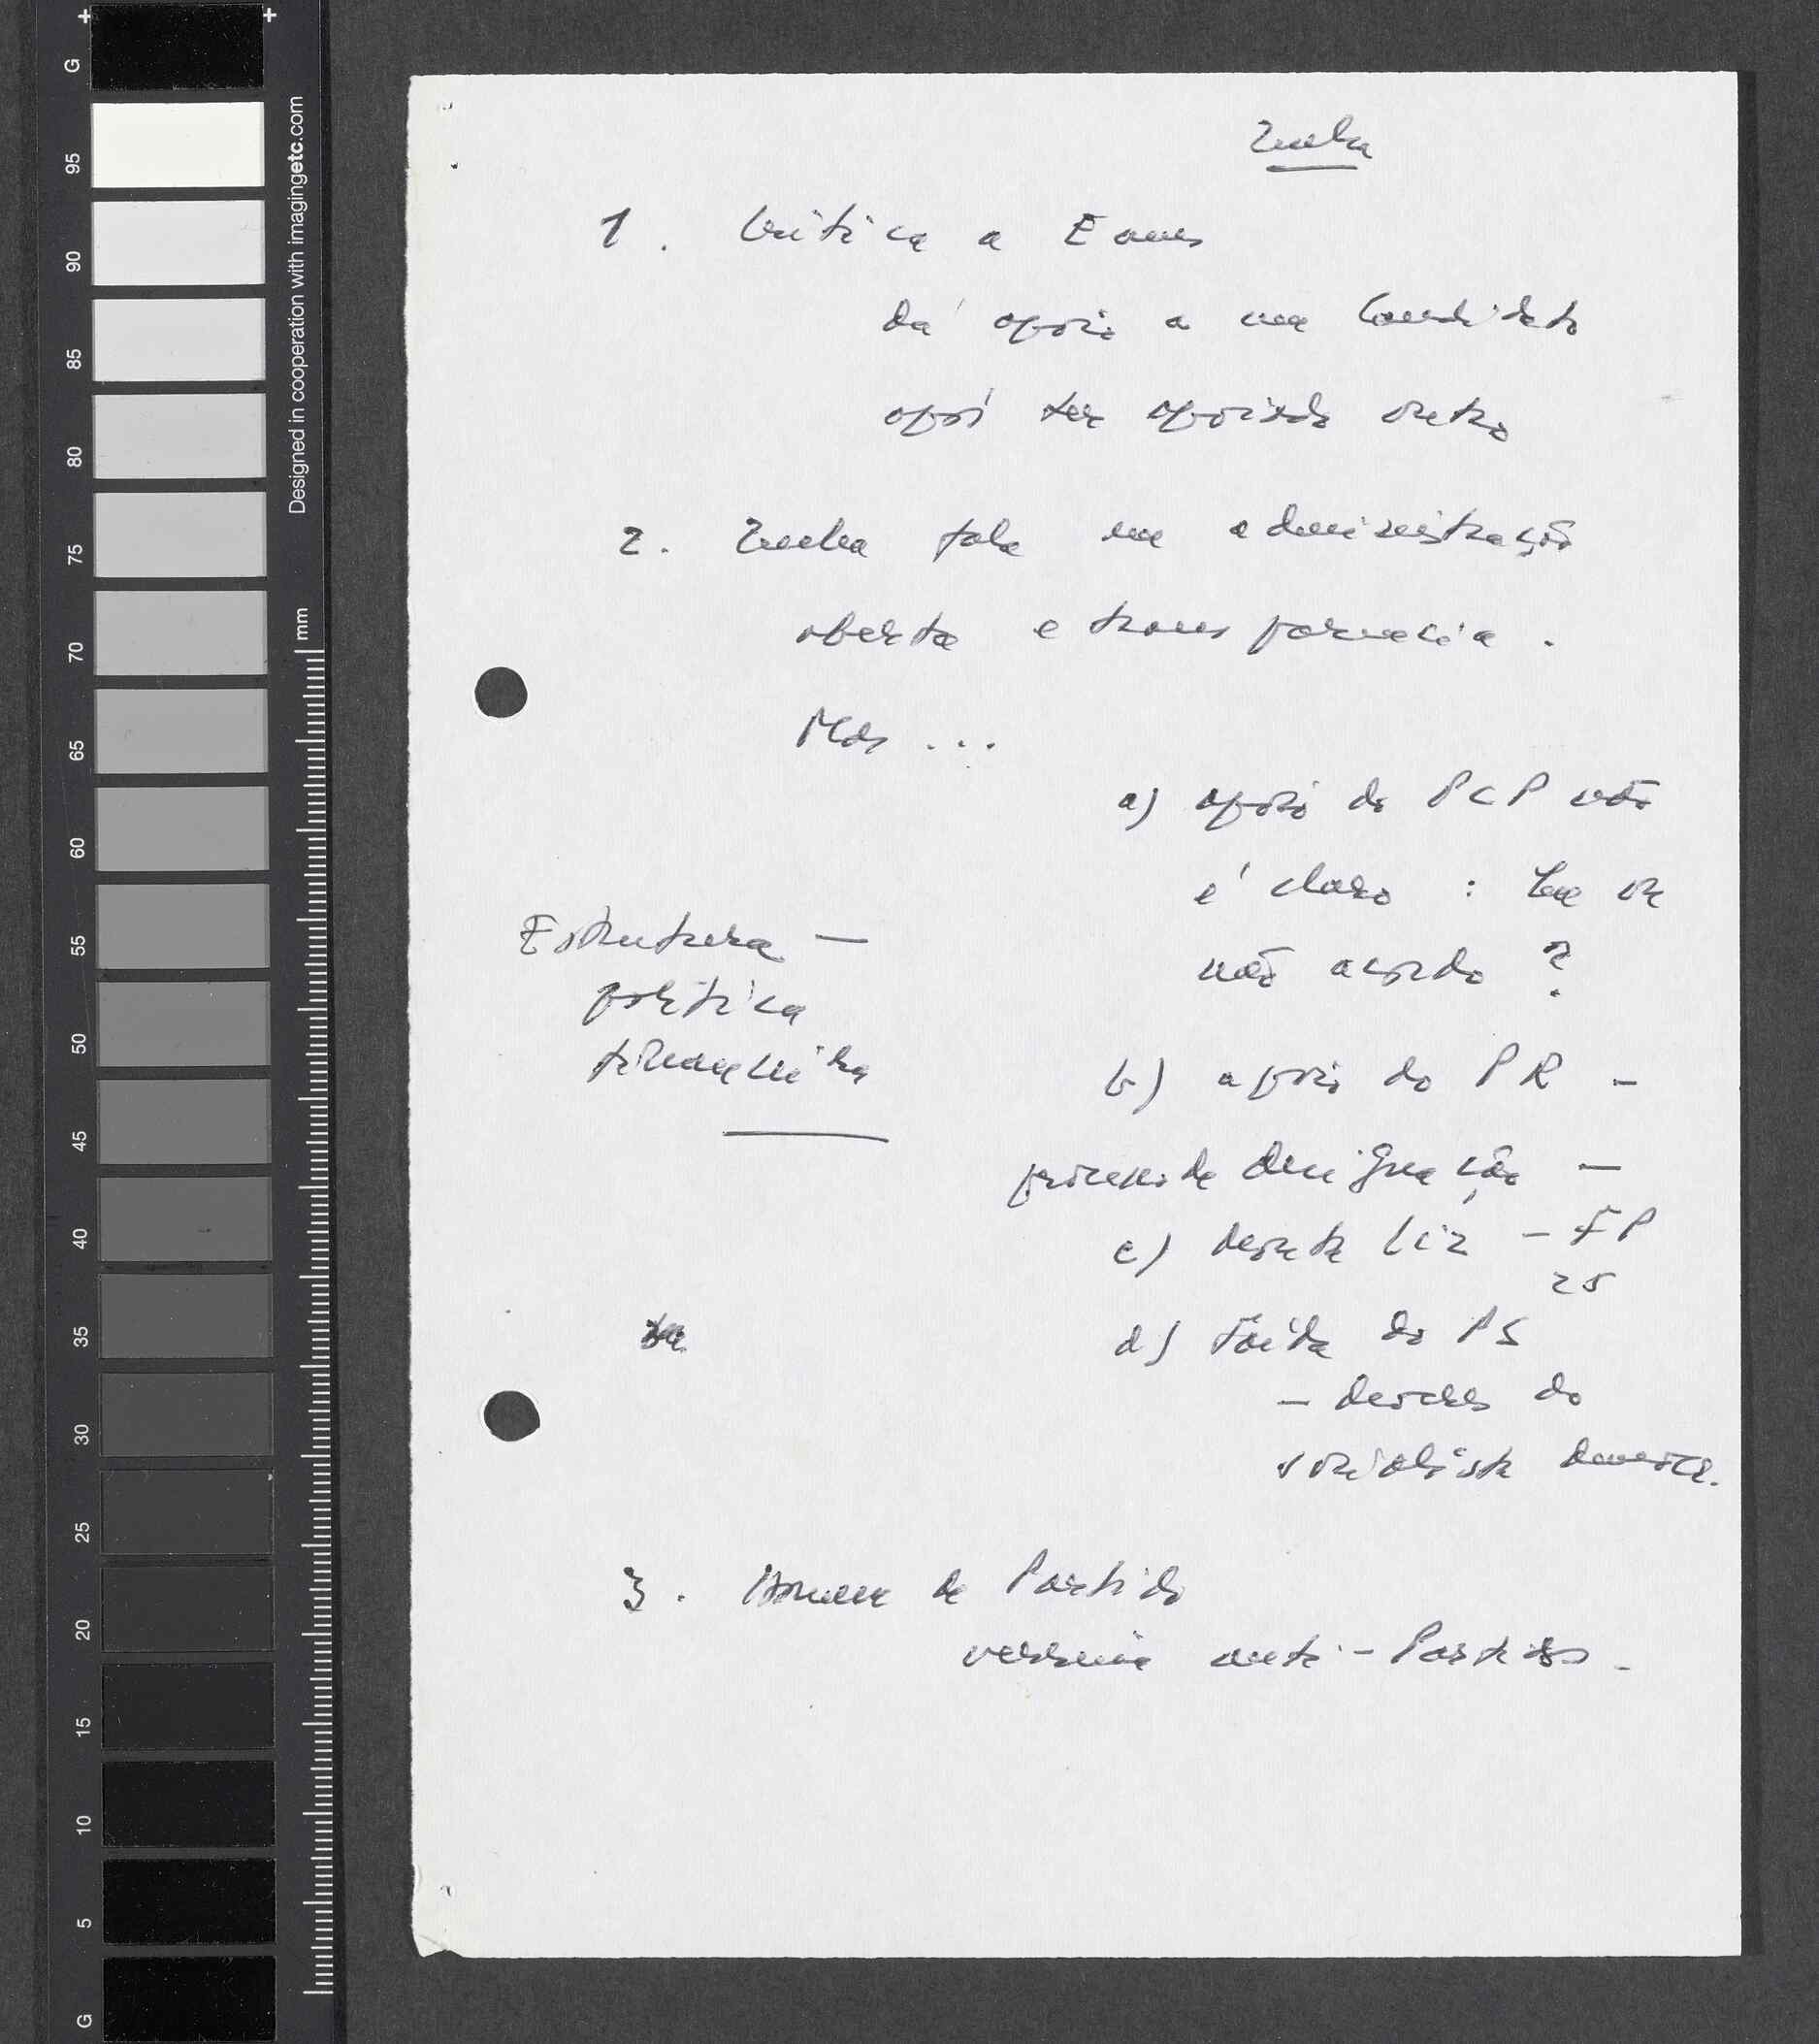 Zenha
1. Crítica a Eanes
dá apoio a um candidato
após ter apoiado outro
2. Zenha fala em administração
aberta e transparencia.
Mas ...
a) apoio do PCP não
é claro : tem ou
não acordo ?
Estrutura —
política
financeira
b) apoio do PR -
processo de designação —
c) deputa - FP
25
d) saída do PS
-  do
socialista
3. Homem de Partido
anti-Partidos.
G
95
90
85
80
75
70
65
60
55
50
45
40
35
30
25
20
15
10
5
G
mm
Designed in cooperation with imagingetc.com